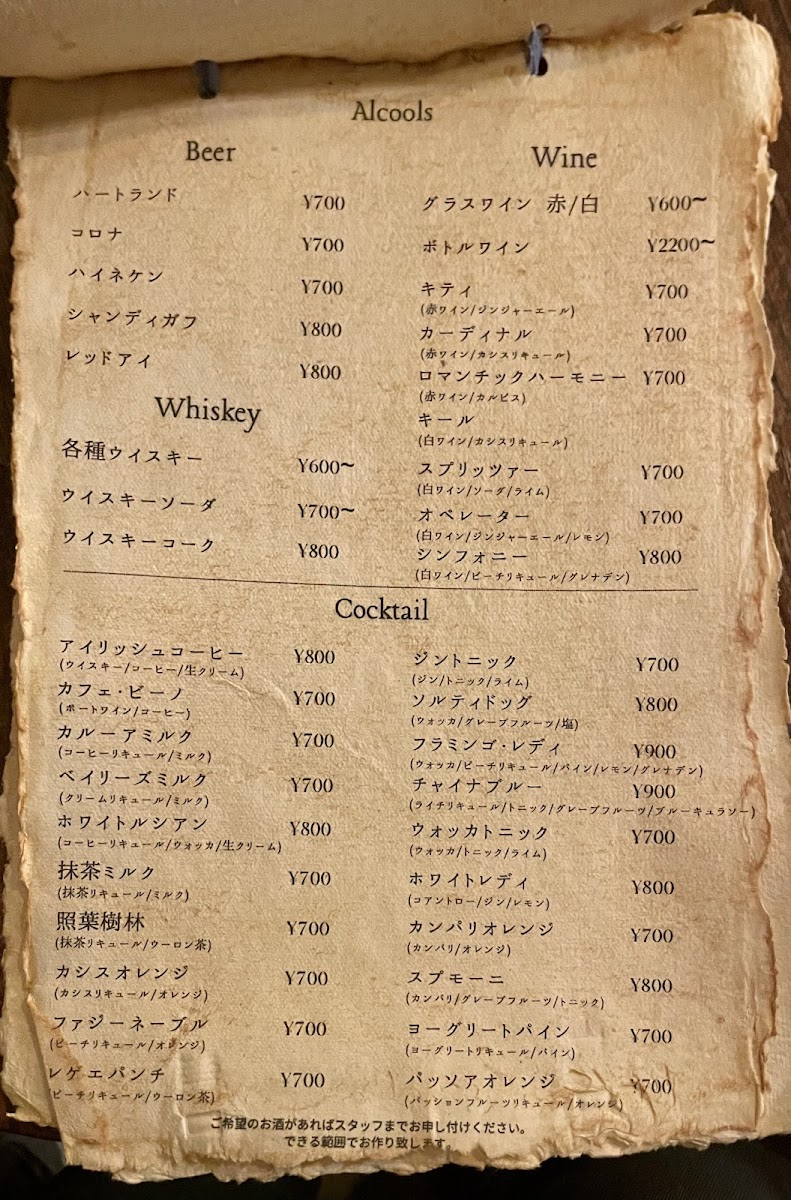 Alcools
Beer
ハートランド ¥700
コロナ ¥700
ハイネケン ¥700
シャンディガフ ¥800
レッドアイ ¥800
Whiskey
各種ウイスキー ¥600~
ウイスキーソーダ ¥700~
ウイスキーコーク ¥800
Wine
グラスワイン 赤/白 ¥600~
ボトルワイン ¥2200~
キティ ¥700
(赤ワイン/ジンジャーエール)
カーディナル ¥700
(赤ワイン/カシスリキュール)
ロマンチックハーモニー ¥700
(赤ワイン/カルピス)
キール
(白ワイン/カシスリキュール)
スプリッツァー ¥700
(白ワイン/ソーダ/ライム)
オペレーター ¥700
(白ワイン/ジンジャーエール/レモン)
シンフォニー ¥800
(白ワイン/ピーチリキュール/グレナデン)
Cocktail
アイリッシュコーヒー ¥800
(ウイスキー/コーヒー/生クリーム)
カフェ・ビーノ ¥700
(ポートワイン/コーヒー)
カルーアミルク ¥700
(コーヒーリキュール/ミルク)
ベイリーズミルク ¥700
(クリームリキュール/ミルク)
ホワイトルシアン ¥800
(コーヒーリキュール/ウォッカ/生クリーム)
抹茶ミルク ¥700
(抹茶リキュール/ミルク)
照葉樹林 ¥700
(抹茶リキュール/ウーロン茶)
カシスオレンジ ¥700
(カシスリキュール/オレンジ)
ファジーネーブル ¥700
(ピーチリキュール/オレンジ)
レゲエパンチ ¥700
ピーチリキュール/ウーロン茶)
ジントニック ¥700
(ジン/トニック/ライム)
ソルティドッグ ¥800
(ウォッカ/グレープフルーツ/塩)
フラミンゴ・レディ ¥900
(ウォッカ/ピーチリキュール/パイン/レモン/グレナデン)
チャイナブルー ¥900
(ライチリキュール/トニック/グレープフルーツ/ブルーキュラソー)
ウォッカトニック ¥700
(ウォッカ/トニック/ライム)
ホワイトレディ ¥800
(コアントロー/ジン/レモン)
カンパリオレンジ ¥700
(カンパリ/オレンジ)
スプモーニ ¥800
(カンパリ/グレープフルーツ/トニック)
ヨーグリートパイン ¥700
(ヨーグリートリキュール/パイン)
パッソアオレンジ ¥700
(パッションフルーツリキュール/オレンジ)
ご希望のお酒があればスタッフまでお申し付けください。
できる範囲でお作り致します。